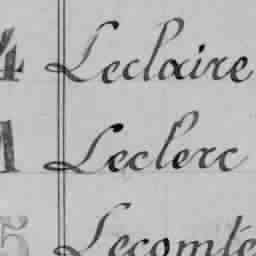 4 Leclaire
1 Leclerc
5 Lecomte